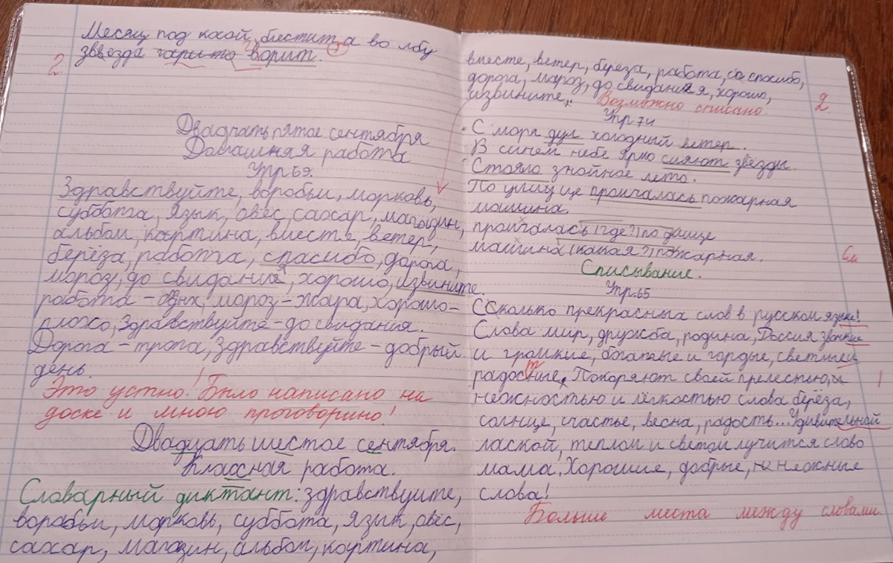 Месяц под косой блестит, а во лбу
звезда горит.
2
Двадцать пятое сентября
Домашняя работа
Упр. 69.
Здравствуйте, воробьи, морковь,
суббота, язык, овёс, сахар, магазин,
альбом, картина, вместе, ветер,
берёза, работа, спасибо, дорога,
мороз, до свидания, хорошо, извините.
работа – мороз – жара, хорошо-
плохо, Здравствуйте – до свидания.
Дорога – здравствуйте – добрый
день.
Это устно! Было написано на
доске и мною проговорино!
Двадцать шестое сентября.
Классная работа.
Словарный диктант: здравствуйте,
воробьи, морковь, суббота, язык, овёс,
сахар, магазин, альбом, картина,
вместе, ветер, берёза, работа, спосибо,
дорога, мароз, до свидания, хорошо,
извините.
Возможно списано
2
Упр. 74
С моря дул холодный ветер.
В синем небе ярко сияют звёзды.
Стояло знойное лето.
По улице промчалась пожарная
машина.
промчалась (где?) по улице
машина (какая?) пожарная.
См
Списывание.
Упр. 65
Сколько прекрасных слов в русском языке!
Слова мир, дружба, родина, Россия звонкие
и громкие, богатые и гордые, светлые и
радосные. Покоряют своей прелестью,
нежностью и лёгкостью слова берёза,
солнце, счастье, весна, радость... Удивительной
лаской, теплом и светом лучится слово
мама! Хорошие, добрые, нежные
слова!
Больше места между словами